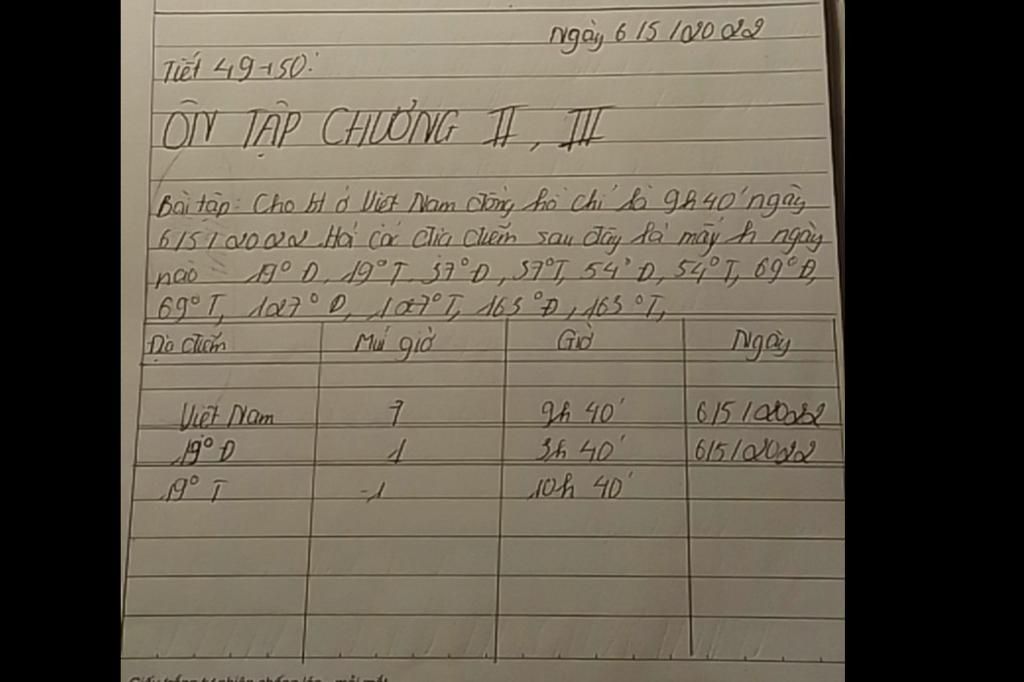 Ngày 6/5/2022
Tiết 49+50:
ÔN TẬP CHƯƠNG II, III
Bài tập: Cho bt ở Việt Nam đồng hồ chỉ là 9h40' ngày
6/5/2022. Hỏi các địa điểm sau đây là mấy h ngày
nào 19° Đ, 19° T, 37° Đ, 37° T, 54° Đ, 54° T, 69° Đ,
69° T, 127° Đ, 127° T, 163° Đ, 163° T,
Địa điểm Múi giờ Giờ Ngày
Việt Nam 7 9h 40' 6/5/2022
19° Đ 1 3h 40' 6/5/2022
19° T -1 10h 40'